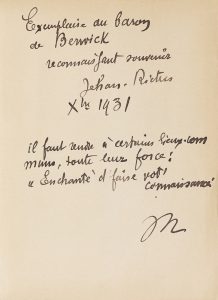 Exemplaire du baron
de Berwick
reconnaissant souvenir
Jehan-Rictus
Xbre 1931
il faut rendre à certains lieux-com
muns, toute leur force!
« Enchanté d'faire vot'
connaissance
JR